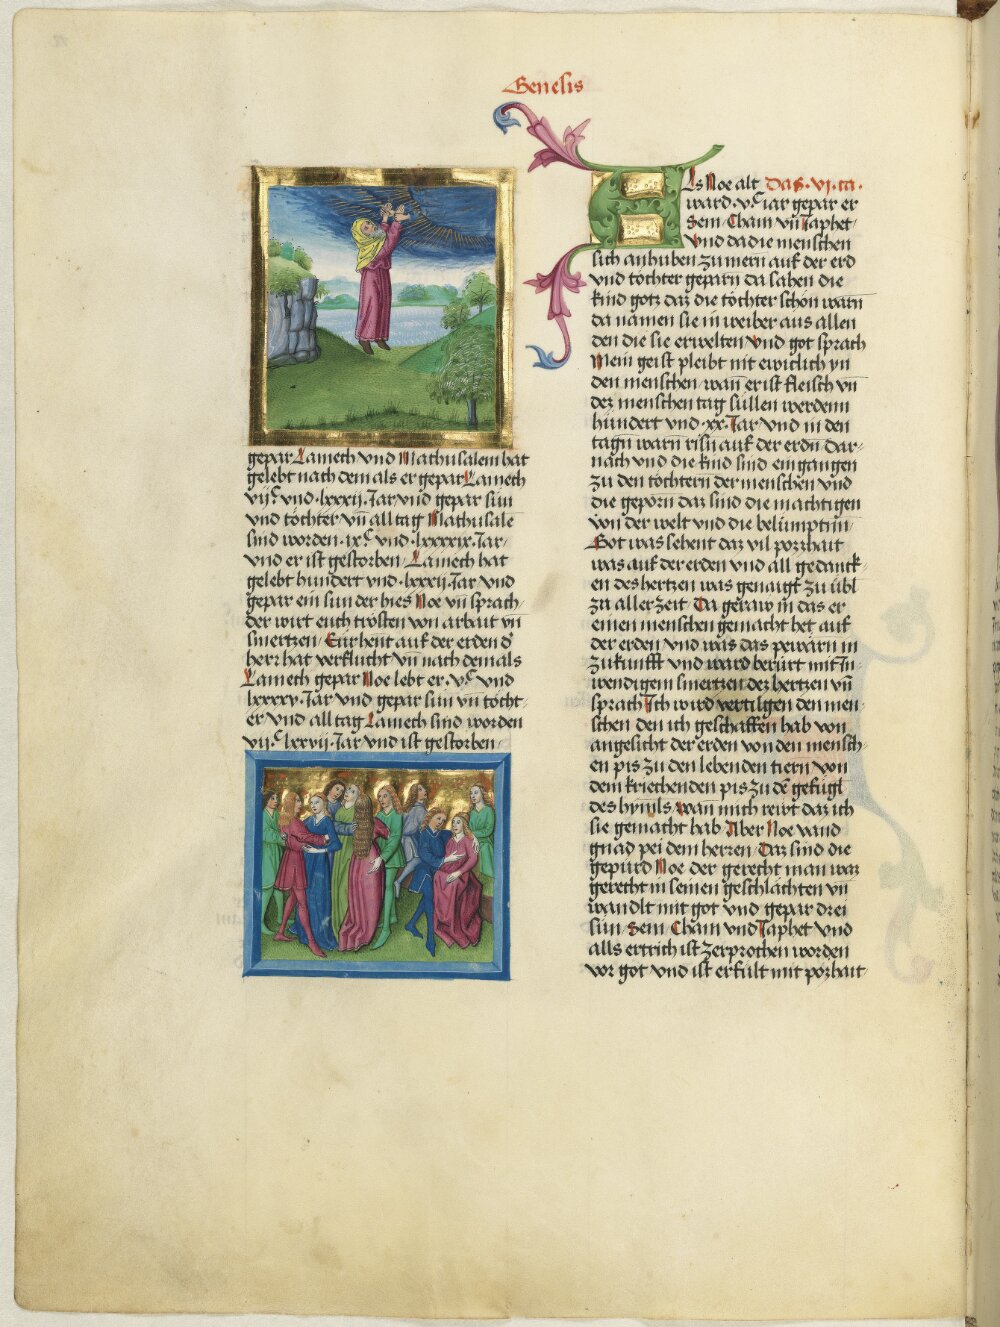 Genesis
gepar Lamech vnd Mathusalem hat
gelebt nach dem als er gepar Lamech
vijᶜ vnd ·lxxxij· Jar vnd gepar sün
vnd töchter vn̄ all tag Mathusale
sind worden ·ix·ᶜ vnd ·lxxxxix· Jar·
vnd er ist gestorben· Lamech hat
gelebt hundert vnd ·lxxxij· Jar vnd
gepar ein sun der hies Noe vn̄ sprach
der wirt euch trösten von arbait vn̄
smertzen· Eur hent auf der erden d̄
herr hat verflucht vn̄ nach dem als
Lamech gepar Noe lebt er ·vᶜ· vnd
lxxxxv· Jar vnd gepar sün vn̄ töcht
er vnd all tag Lamech sind worden
vij·ᶜ lxxvij· Jar vnd ist gestorben·
Als Noe alt das ·vj· ca·
ward ·v·ᶜ iar gepar er
Sem Cham vn̄ Japhet
Vnd da die menschen
sich anhuben zu mern auf der erd
vnd töchter geparn da sahen die
kind gotz daz die töchter schön warn
da namen sie in weiber aus allen
den die sie erwelten Vnd got sprach
Mein geist pleibt nit ewiclich yn
den menschen wan̄ er ist fleisch vn̄
dez menschen tag sullen werdenn
hundert vnd ·xx· Jar vnd in den
tagn̄ warn risn̄ auf der erdn̄ Dar
nach vnd die kind sind ein gangen
zu den töchtern der menschen vnd
die geporn daz sind die machtigen
von der welt vnd die belümptm̄
Got was sehent daz vil pozhait
was auf der erden vnd all gedanck
en des hertzen was genaigt zu übl
zu aller zeit Da geraw in das er
einen menschen gemacht het auf
der erden vnd was das pewarn in
zukunfft vnd ward berürt mit In
wendigem smertzen dez hertzen vn̄
sprach Ich wird vertilgen den men
schen den ich geschaffen hab von
angesicht der erden von den mensch
en pis zu den lebenden tiern von
dem kriechenden pis zu dē gefügl
des hymls wan̄ mich rewt daz ich
sie gemacht hab Aber Noe vand
gnad pei dem herren Daz sind die
gepurd Noe der gerecht man waz
gerecht in seinen geschlächten vn̄
wandlt mit got vnd gepar drei
sün Sem Cham vnd Japhet Vnd
alls ertrich ist zerprochen worden
vor got vnd ist erfült mit pozhait